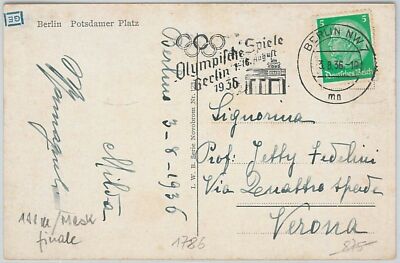 Berlin Potsdamer Platz
Olympische Spiele
Berlin 1.-16. August
1936
BERLIN NW7
3.8.36
mn
5
5
Deutsches Reich
Berlino 3-8-1936
I. W. B. Serie Novobrom Nr.
Signorina
Prof. Jetty Fedelini
Via Quattro spade
Verona
finale
1786
875